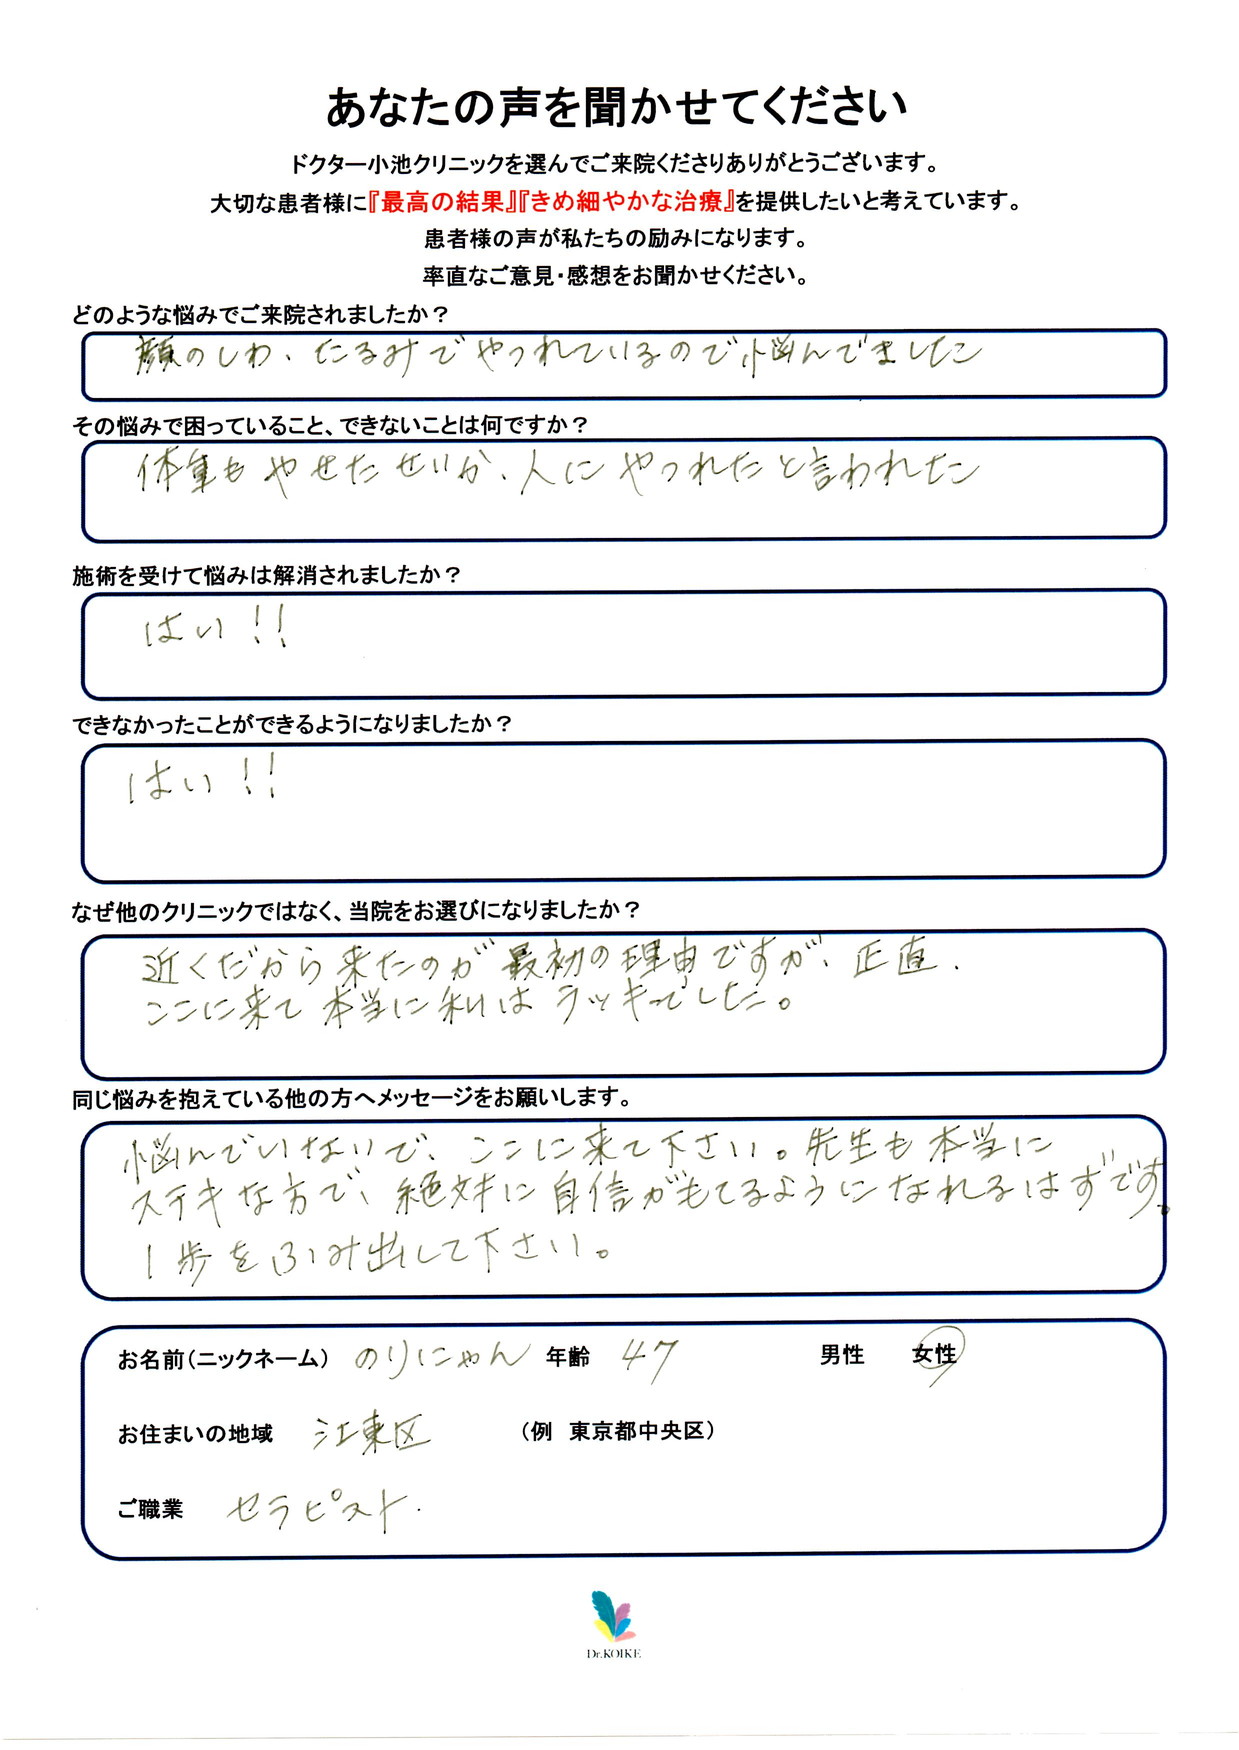 あなたの声を聞かせてください
ドクター小池クリニックを選んでご来院くださりありがとうございます。
大切な患者様に『最高の結果』『きめ細やかな治療』を提供したいと考えています。
患者様の声が私たちの励みになります。
率直なご意見・感想をお聞かせください。
どのような悩みでご来院されましたか？
顔のしわ、たるみでやつれているので悩んでました
その悩みで困っていること、できないことは何ですか？
体重もやせたせいか、人にやつれたと言われた
施術を受けて悩みは解消されましたか？
はい!!
できなかったことができるようになりましたか？
はい!!
なぜ他のクリニックではなく、当院をお選びになりましたか？
近くだから来たのが最初の理由ですが、正直、
ここに来て本当に私はラッキーでした。
同じ悩みを抱えている他の方へメッセージをお願いします。
悩んでいないで、ここに来て下さい。先生も本当に
ステキな方で、絶対に自信がもてるようになれるはずです。
1歩をふみ出して下さい。
お名前(ニックネーム) のりにゃん 年齢 47 男性 女性
お住まいの地域 江東区 （例 東京都中央区）
ご職業 セラピスト.
Dr.KOIKE